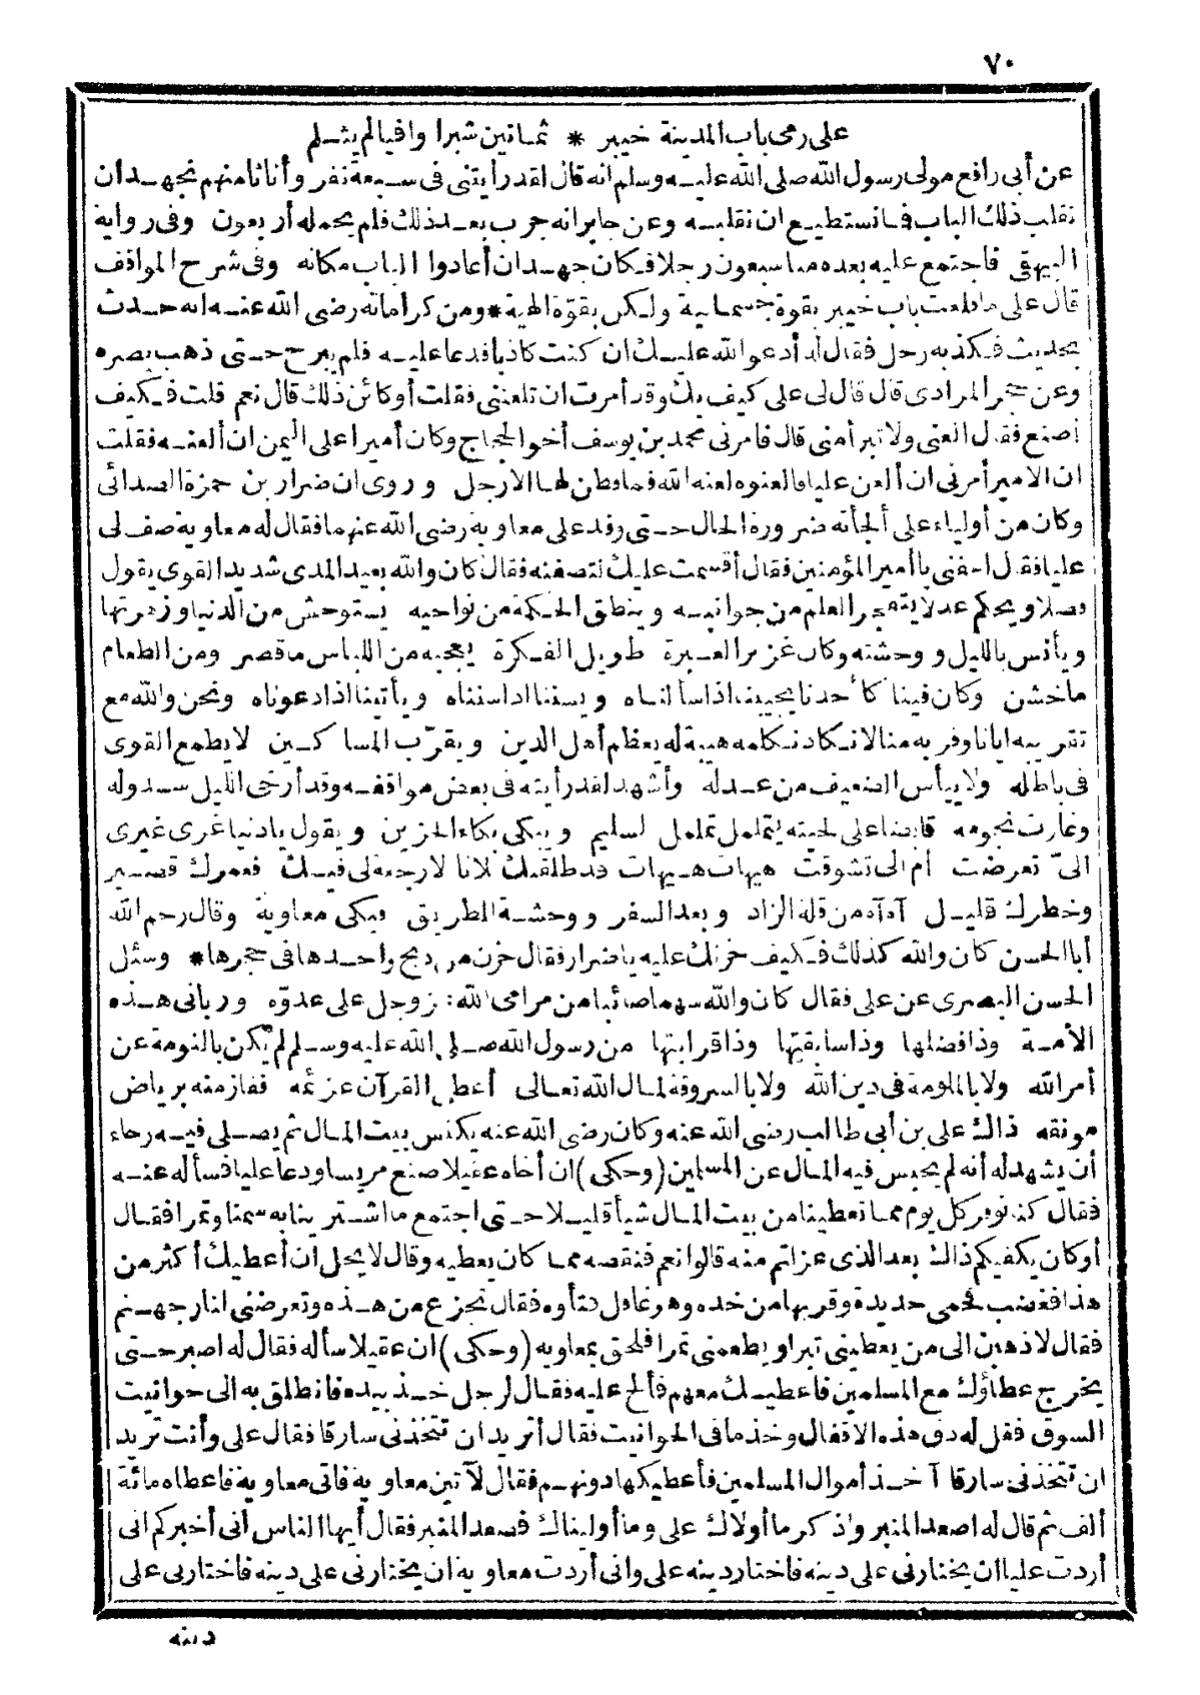 ٧٠
على رمى باب المدينة خيبر * ثمانين شبرا وافيا لم يثلم
عن أبى رافع مولى رسول الله صلى الله عليه وسلم انه قال لقد رأيتنى فى سبعة نفر وأنا ثامنهم نجهد ان
نقلب ذلك الباب فانستطيع ان نقلبه وعن جابر انه جرب بعد ذلك فلم يحمله أربعون وفى رواية
البيهقى فاجتمع عليه بعده منا سبعون رجلا فكان جهد ان أعادوا الباب مكانه وفى شرح المواقف
قال على ما قلعت باب خيبر بقوة جسمانية ولكن بقوّة الهية * ومن كراماته رضى الله عنه انه حدث
بحديث فكذبه رجل فقال له أدعو الله عليك ان كنت كاذبا فدعا عليه فلم يبرح حتى ذهب بصره
وعن حجر المرادى قال قال لى على كيف بك وقد أمرت ان تلعننى فقلت أوكائن ذلك قال نعم قلت فكيف
اصنع فقال العنى ولا تبرأ منى قال فامرنى محمد بن يوسف أخو الحجاج وكان أميرا على اليمن ان ألعنه فقلت
ان الامير أمرنى ان ألعن عليا فالعنوه لعنه الله فما فطن لها الا رجل وروى ان ضرار بن حمزة الصدائى
وكان من أولياء على ألجأته ضرورة الحال حتى وفد على معاوية رضى الله عنهما فقال له معاوية صف لى
عليا فقال اعفنى يا أمير المؤمنين فقال أقسمت عليك لتصفنه فقال كان والله بعيد المدى شديد القوى يقول
فصلا ويحكم عدلا يتفجر العلم من جوانبه وينطق الحكمة من نواحيه يستوحش من الدنيا وزهرتها
ويأنس بالليل ووحشته وكان غزير العبرة طويل الفكرة يعجبه من اللباس ما قصر ومن الطعام
ما خشن وكان فينا كأحدنا يجيبنا اذا سألناه وينبئنا اذا استنبأناه ويأتينا اذا دعوناه ونحن والله مع
تقريبه ايانا وقربه منا لا نكاد نكلمه هيبة له يعظم أهل الدين ويقرّب المساكين لا يطمع القوى
فى باطله ولا ييأس الضعيف من عدله وأشهد لقد رأيته فى بعض مواقفه وقد أرخى الليل سدوله
وغارت نجومه قابضا على لحيته يتململ تململ السليم ويبكى بكاء الحزين ويقول يا دنيا غرى غيرى
الىّ تعرضت أم الى تشوقت هيهات هيهات قد طلقتك ثلاثا لا رجعة لى فيك فعمرك قصير
وخطرك قليل آه آه من قلة الزاد وبعد السفر ووحشة الطريق فبكى معاوية وقال رحم الله
أبا الحسن كان والله كذلك فكيف حزنك عليه يا ضرار فقال حزن من ذبح واحدها فى حجرها * وسئل
الحسن البصرى عن على فقال كان والله سهما صائبا من مرامى الله عز وجل على عدوّه وربانى هذه
الأمة وذا فضلها وذا سابقتها وذا قرابتها من رسول الله صلى الله عليه وسلم لم يكن بالنومة عن
أمر الله ولا بالملومة فى دين الله ولا بالسروقة لمال الله تعالى أعطى القرآن عزائمه ففاز منه برياض
مونقه ذاك على بن أبى طالب رضى الله عنه وكان رضى الله عنه يكنس بيت المال ثم يصلى فيه رجاء
أن يشهد له أنه لم يحبس فيه المال عن المسلمين (وحكى) ان أخاه عقيلا صنع هريسا ودعا عليا فسأله عنه
فقال كنا نوفر كل يوم مما تعطينا من بيت المال شيأ قليلا حتى اجتمع ما اشترينا به سمنا وتمرا فقال
أوكان يكفيكم ذاك بعد الذى عزلتم منه قالوا نعم فنقصه مما كان يعطيه وقال لا يحل لى ان أعطيك أكثر من
هذا فغضب فحمى حديدة وقربها من خده وهو غافل فتأوه فقال تجزع من هذه وتعرضنى لنار جهنم
فقال لاذهبن الى من يعطينى تبرا ويطعمنى تمرا فلحق بمعاويه (وحكى) ان عقيلا سأله فقال له اصبر حتى
يخرج عطاؤك مع المسلمين فاعطيك معهم فألح عليه فقال لرجل خذ بيده فانطلق به الى حوانيت
السوق فقل له دق هذه الاقفال وخذ ما فى الحوانيت فقال أتريد ان تتخذنى سارقا فقال على وأنت تريد
ان تتخذنى سارقا آخذ أموال المسلمين فأعطيكها دونهم فقال لآتين معاوية فاتى معاوية فاعطاه مائة
ألف ثم قال له اصعد المنبر واذكر ما أولاك على وما أوليناك فصعد المنبر فقال أيها الناس أنى أخبركم انى
أردت عليا ان يختارنى على دينه فاختار دينه على وانى أردت معاوية ان يختارنى على دينه فاختارنى على
دينه